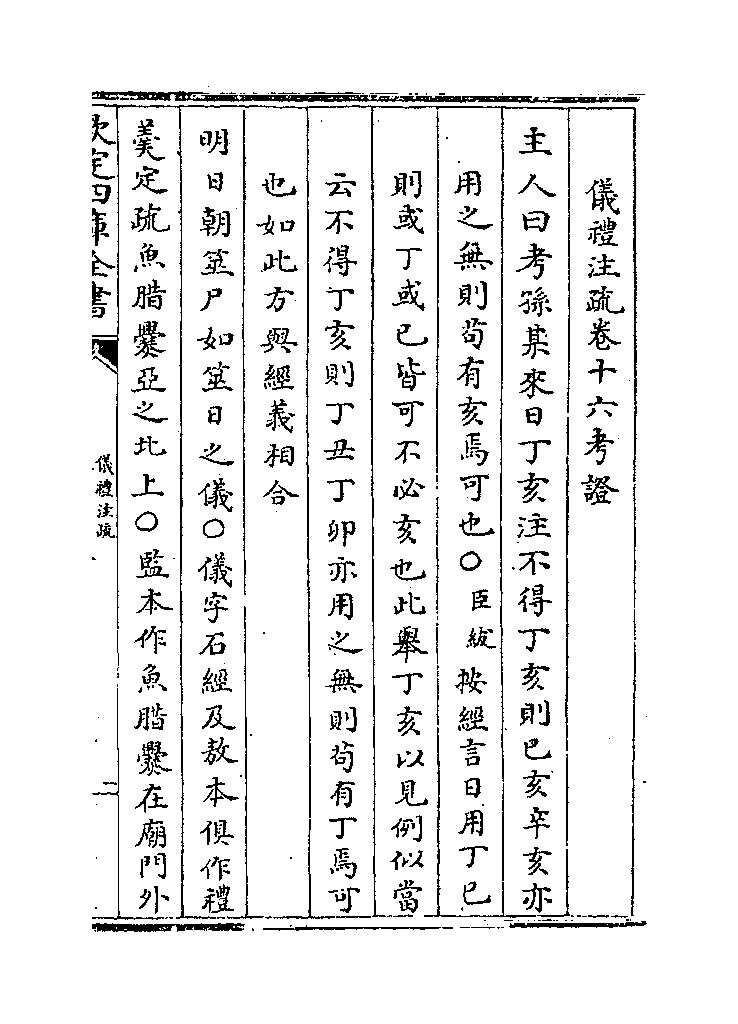 儀禮注疏卷十六考證
主人曰考孫某來日丁亥注不得丁亥則巳亥辛亥亦
用之無則苟有亥焉可也○臣紱按經言日用丁巳
則或丁或己皆可不必亥也此舉丁亥以見例似當
云不得丁亥則丁丑丁卯亦用之無則苟有丁焉可
也如此方與經義相合
明日朝筮尸如筮日之儀○儀字石經及敖本俱作禮
羹定疏魚腊爨亞之北上○監本作魚腊爨在廟門外
欽定四庫全書
儀禮注疏
二